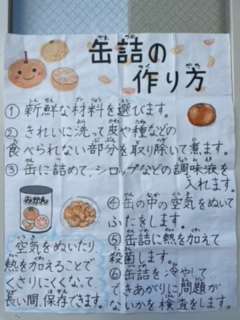 缶詰の
作り方
① 新鮮な材料を選びます。
② きれいに洗って皮や種などの
食べられない部分を取り除いて煮ます。
③ 缶に詰めて、シロップなどの調味液を
入れます。
④ 缶の中の空気をぬいて
ふたをします。
⑤ 缶詰に熱を加えて
殺菌します。
⑥ 缶詰を冷やして
できあがりに問題が
ないかを検査をします。
みかん
空気をぬいたり
熱を加えることで
くさりにくくなって
長い間、保存できます。